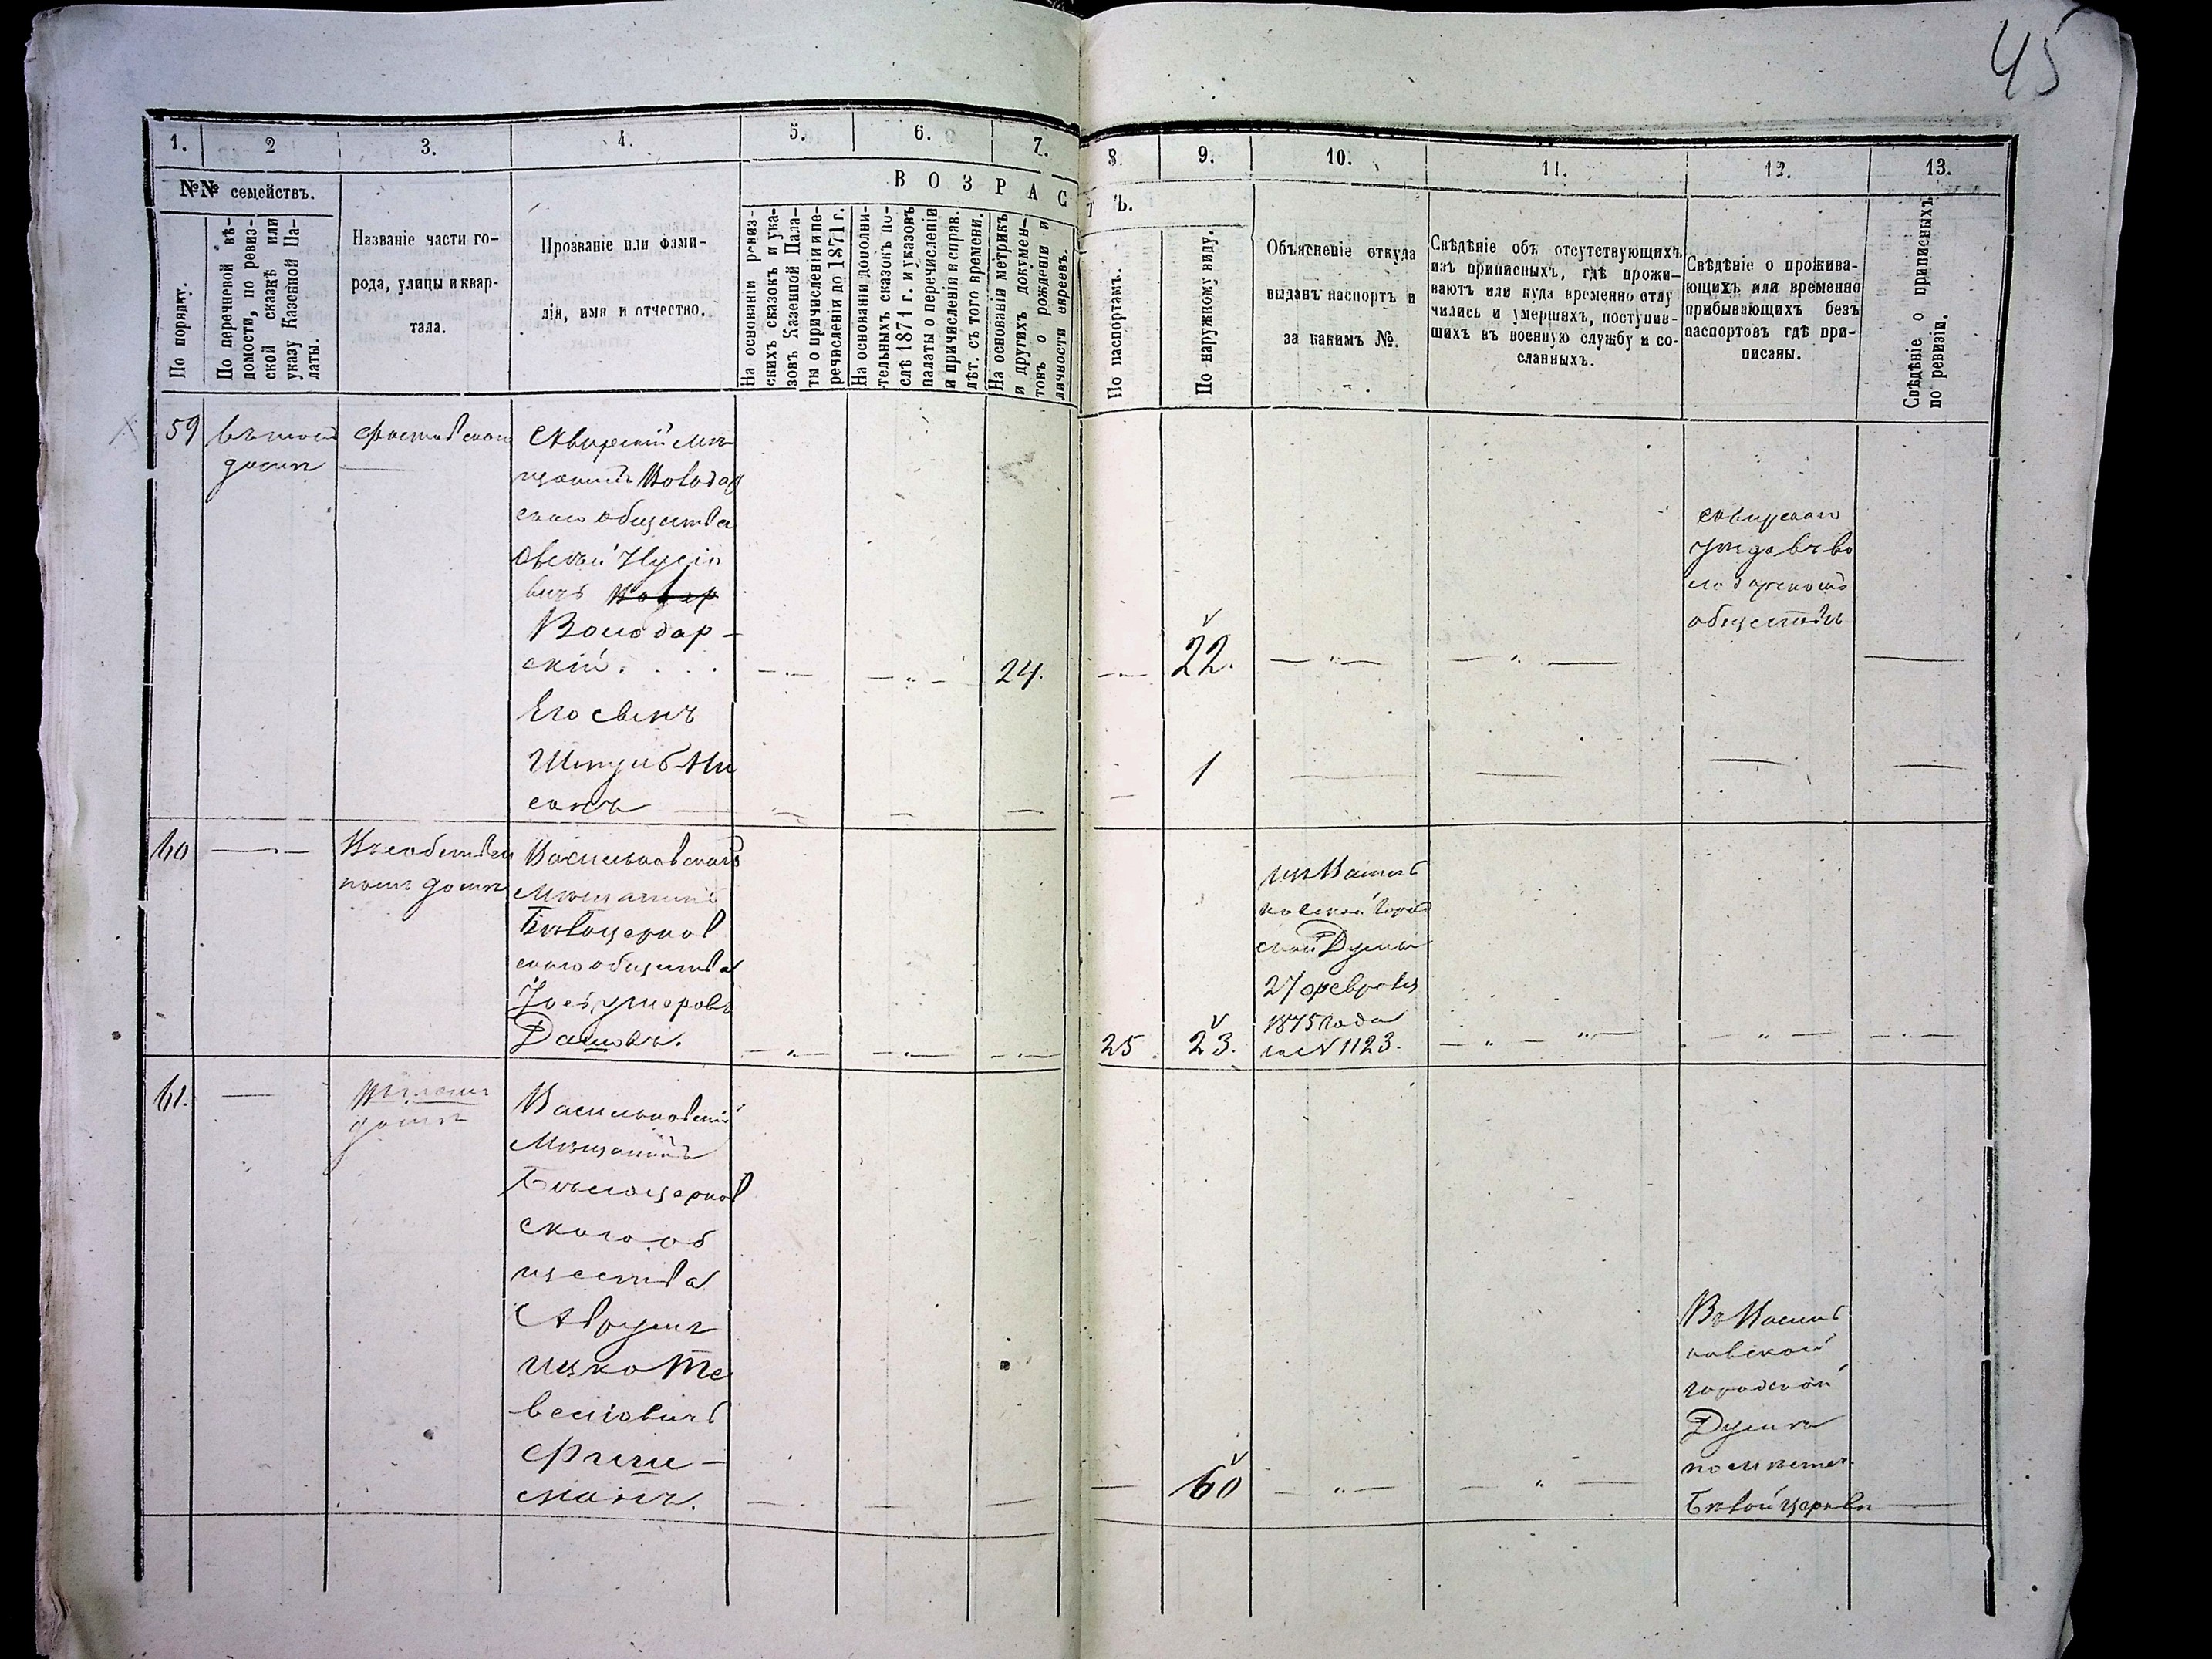 45
1.
2
3.
4.
5.
6.
7.
8.
9.
10.
11.
12.
13.
№№ семействъ.
ВОЗРАС
ТЪ.
По порядку.
По перечневой вѣ-
домости, по ревиз-
ской сказкѣ или
указу Казенной Па-
латы.
Названіе части го-
рода, улицы и квар-
тала.
Прозваніе или фами-
лія, имя и отчество.
На основаніи ревиз-
скихъ сказокъ и ука-
зовъ Казенной Пала-
ты о причисленіи и пе-
речисленіи до 1871 г.
На основаніи дополни-
тельныхъ сказокъ по-
слѣ 1871 г. и указовъ
палаты о перечисленіи
и причисленіи и справ.
лѣт. съ того времени.
На основаніи метрикъ
и другихъ докумен-
товъ о рожденіи и
личности евреевъ.
По паспортамъ.
По наружному виду.
Объясненіе откуда
выданъ паспортъ и
за какимъ №.
Свѣдѣніе объ отсутствующихъ
изъ приписныхъ, гдѣ прожи-
ваютъ или куда временно отлу
чились и умершихъ, поступив-
шихъ въ военную службу и со-
сланныхъ.
Свѣдѣніе о прожива-
ющихъ или временно
прибывающихъ безъ
паспортовъ гдѣ при-
писаны.
Свѣдѣніе о приписныхъ
по ревизіи.
59
домѣ
Сквирскій мѣ
щанинъ Володар
скаго общества
вичъ
Володар-
скій. . . .
24.
22.
Сквирскаго
уѣзда въ Во
лодарскомъ
обществѣ
Его сынъ
Шмуль-Ни
санъ
1
60
Въ собствен
номъ домѣ
Васильковскій
мѣщанинъ
Бѣлоцерков
скаго общества
25
23.
изъ Василь
ковской город
ской Думы
27 февраля
1875 года
за № 1123.
61.
домѣ
Васильковскій
мѣщанинъ
Бѣлоцерков
скаго об
щества
Аврумъ
Ицко
Фиш-
манъ.
60
Въ Василь
ковской
городской
Думѣ
по мѣстеч.
Бѣлой Церкви